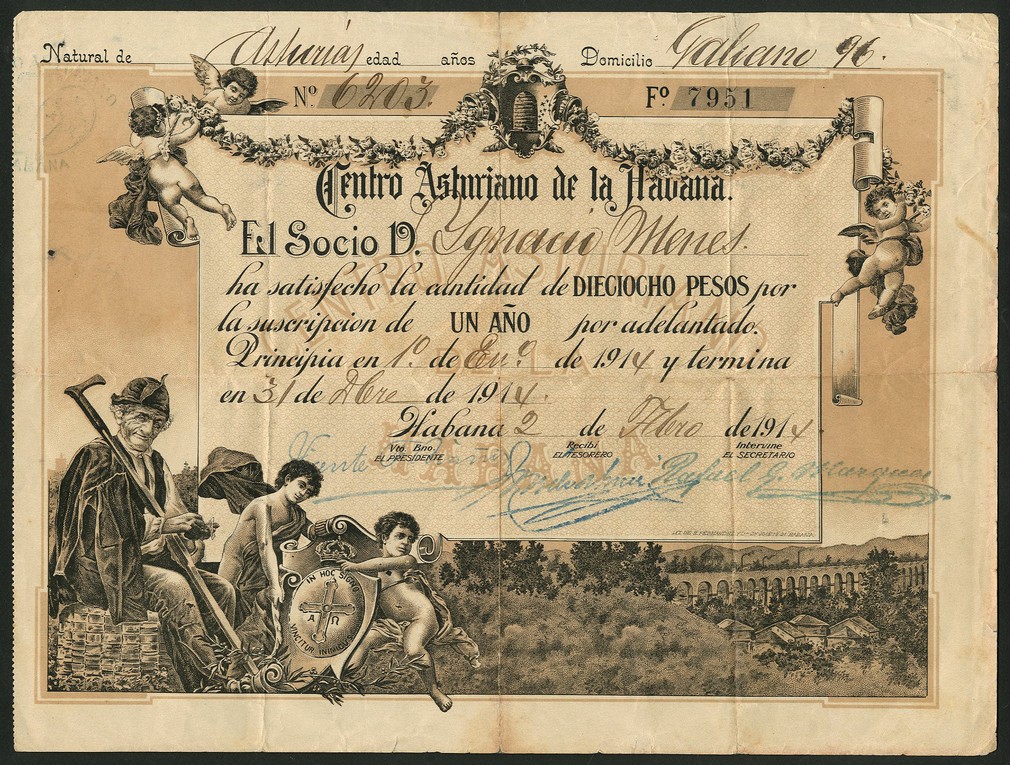 Natural de Asturias edad años Domicilio Galiano 96.
Nº 6203. Fº 7951
Centro Asturiano de la Habana.
El Socio D. Ygnacio Menes.
ha satisfecho la cantidad de DIECIOCHO PESOS por
la suscripcion de UN AÑO por adelantado.
Principia en 1º de Enº de 1914 y termina
en 31 de Dbre de 1914.
Habana 2 de Fbro de 1914
Vto. Bno. Recibí Intervine
EL PRESIDENTE EL TESORERO EL SECRETARIO
Vicente Rafael G. Marques
IN HOC SIGNO
A Ω
VINCITUR INIMICUS